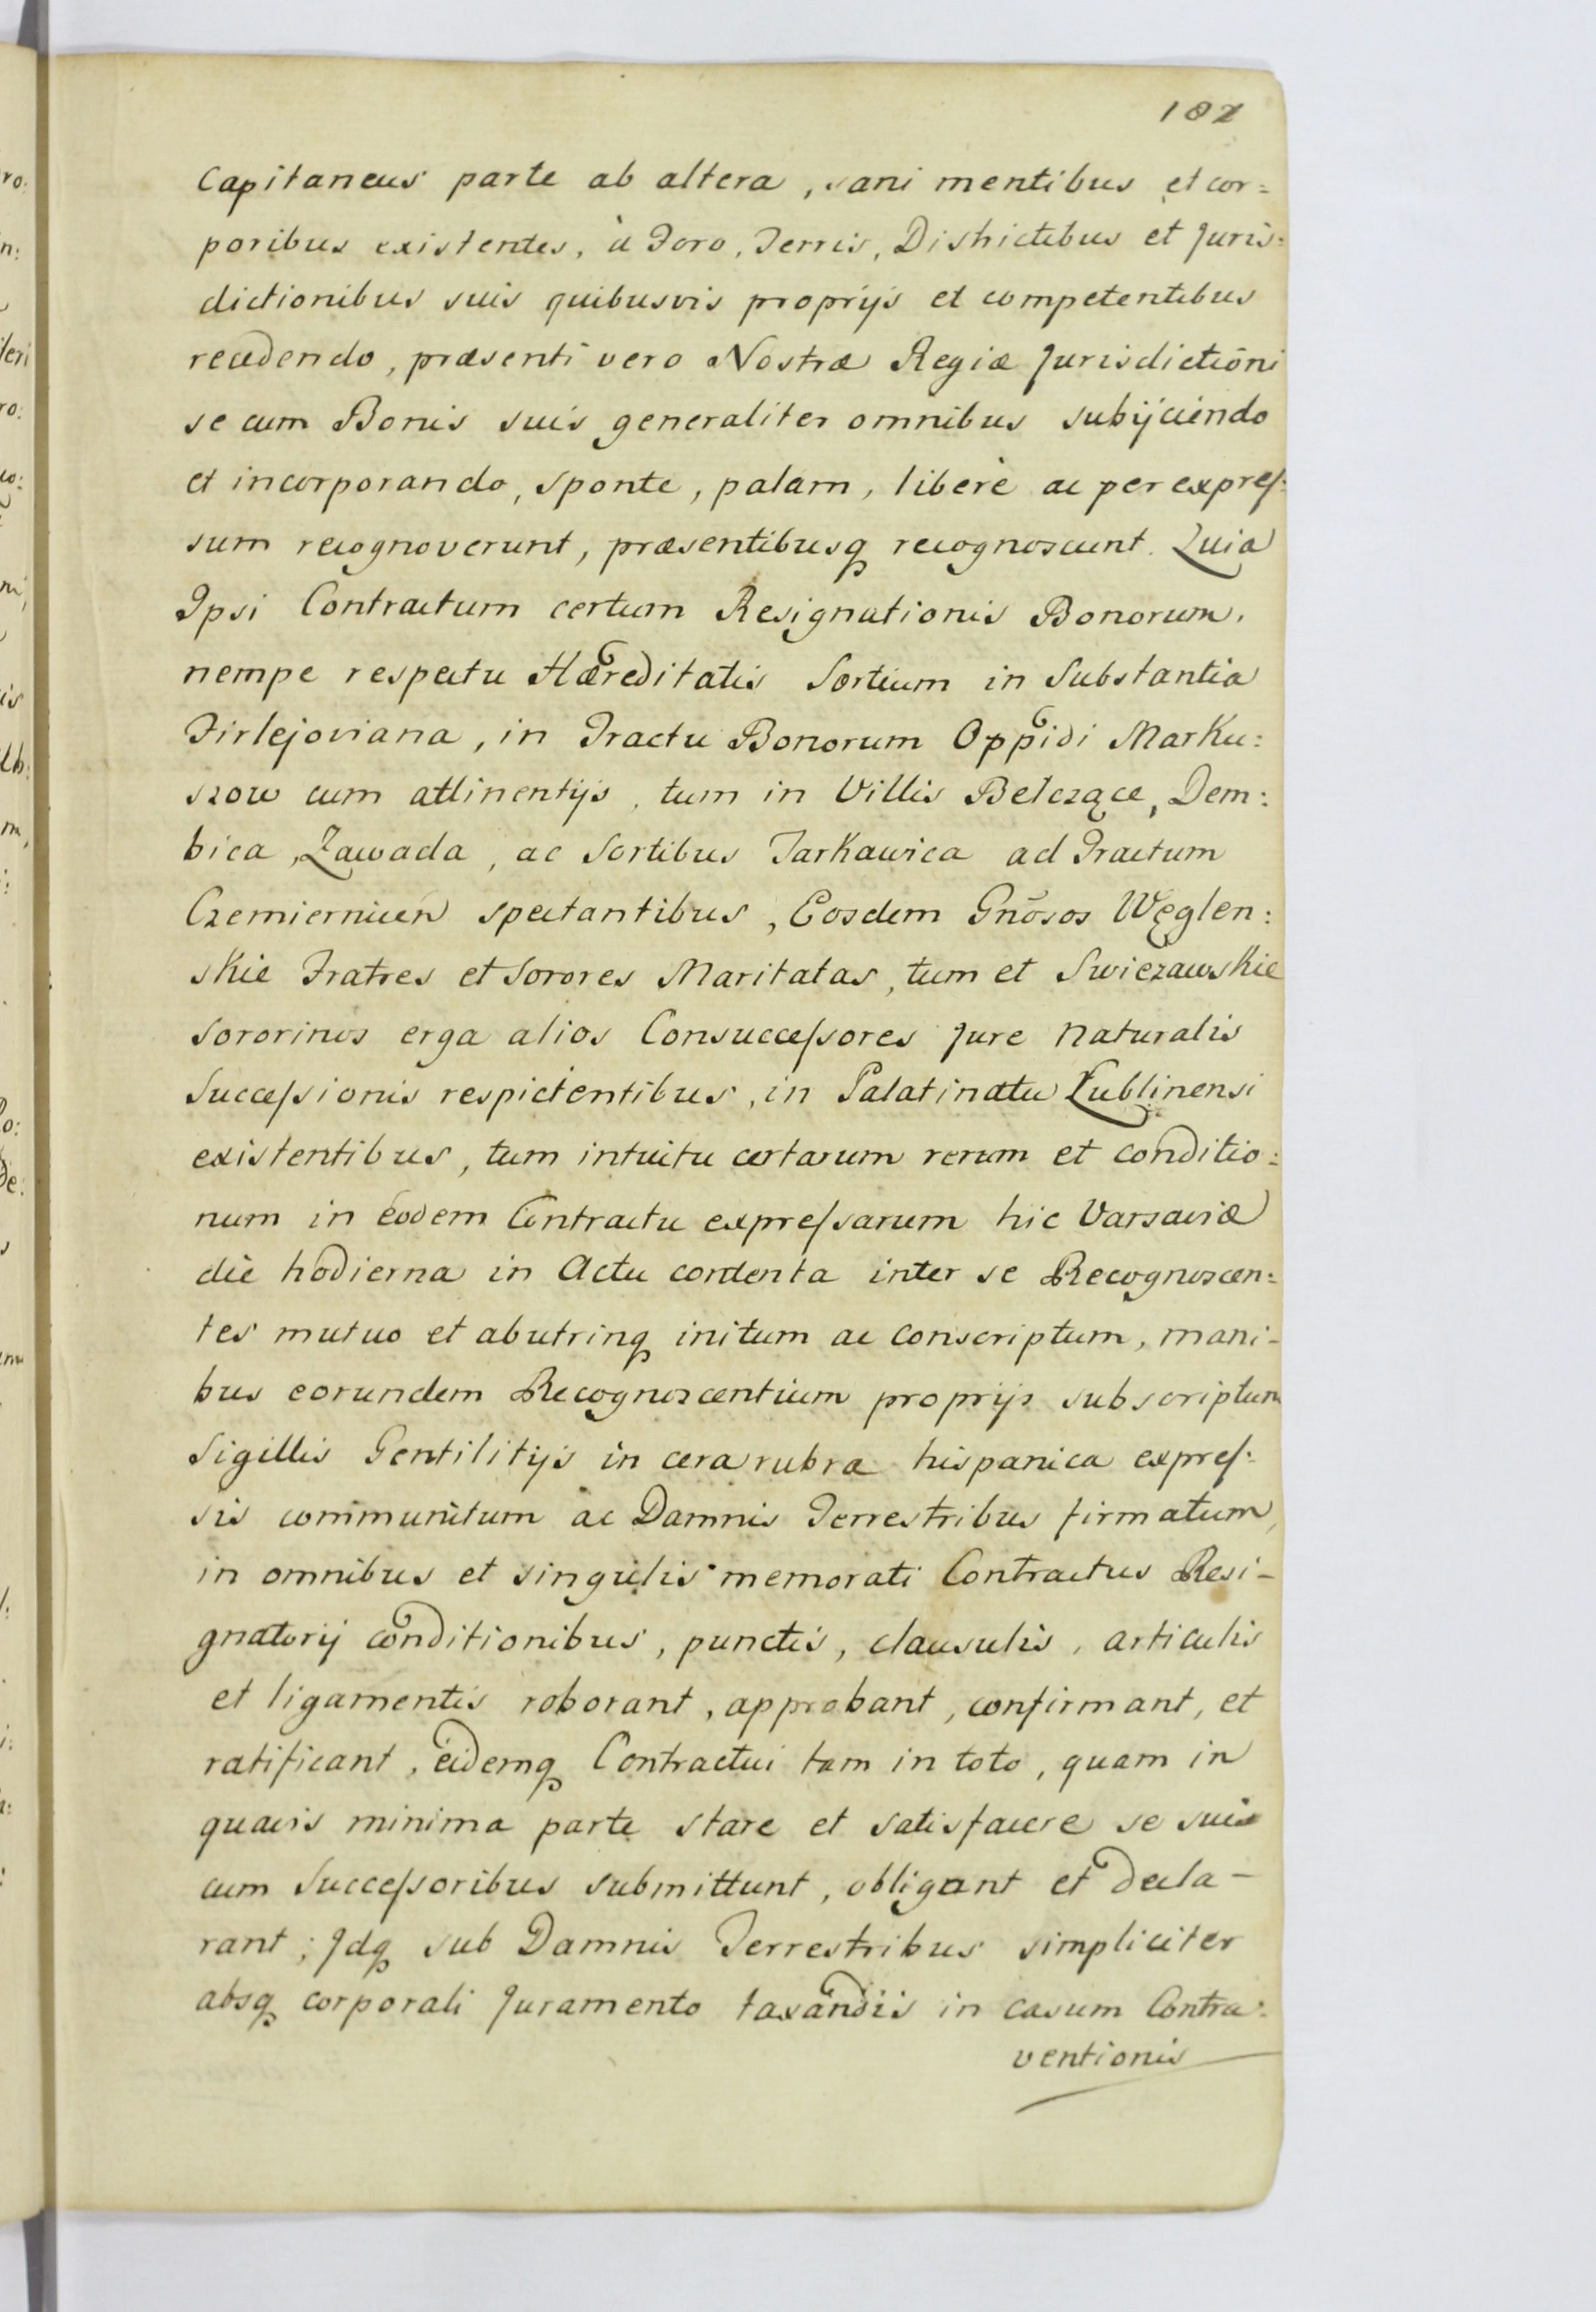 182
Capitaneus parte ab altera, sani mentibus et cor=
poribus existentes, à Foro, Terris, Districtibus et Juris=
dictionibus suis quibusvis proprijs et competentibus
recedendo, præsenti vero Nostræ Regiæ Jurisdictioni
se cum Bonis suis generaliter omnibus subijciendo
et incorporando, sponte, palam, libere ac per expreſ=
sum recognoverunt, præsentibusq recognoscunt. Quia
Ipsi Contractum certum Resignationis Bonorum,
nempe respectu Hæreditatis Sortium in Substantia
Firlejoviana, in Tractu Bonorum Oppidi Marku=
szow cum attinentijs, tum in Villis Bełczące, Dem=
bica, Zawada, ac Sortibus Tarkawica ad Tractum
Czemiernicen spectantibus, Eosdem Gnõsos Węglen=
skie Fratres et Sorores Maritatas, tum et Swiezawskie
Sororinos erga alios Consucceſsores Jure Naturalis
Succeſsionis respicientibus, in Palatinatu Lublinensi
existentibus, tum intuitu certarum rerum et conditio=
num in eodem Contractu expreſsarum hic Varsaviæ
die hodierna in Actu contenta inter se Recognoscen=
tes mutuo et abutrinq initum ac conscriptum, mani-
bus eorundem Recognoscentium proprijs subscriptum
Sigillis Gentilitijs in cera rubra hispanica expreſ=
sis communitum ac Damnis Terrestribus firmatum,
in omnibus et singulis memorati Contractus Resi-
gnatorij conditionibus, punctis, clausulis, articulis
et ligamentis roborant, approbant, confirmant, et
ratificant, eidemq Contractui tam in toto, quam in
quavis minima parte stare et satisfacere se suis
cum Succeſsoribus submittunt, obligant et decla-
rant; Idq sub Damnis Terrestribus simpliciter
absq corporali Juramento taxandis in casum Contra=
ventionis